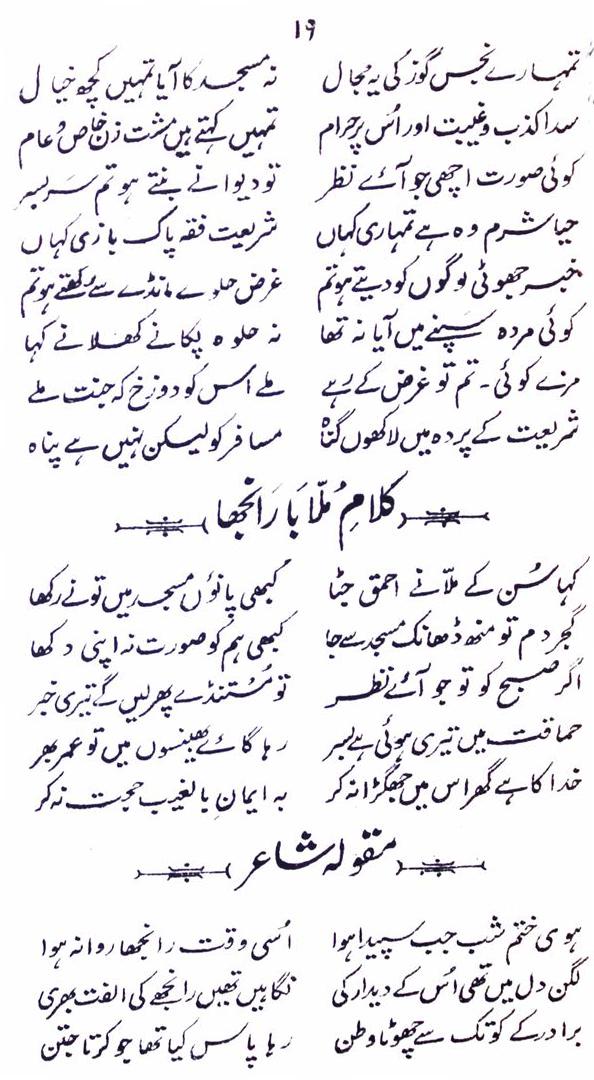 ۱۹
تمہارے نجس گوز کی یہ مجال نہ مسجد کا آیا تمہیں کچھ خیال
سدا کذب و غیبت اور اُس پر حرام تمہیں کہتے ہیں مشت زن خاص و عام
کوئی صورت اچھی جو آئے نظر تو دیوانے بنتے ہو تم سربسر
حیا شرم وہ ہے تمہاری کہاں شریعت فقہ پاک بازی کہاں
خبر جھوٹی لوگوں کو دیتے ہو تم غرض حلوے مانڈے سے رکھتے ہو تم
کوئی مردہ سپنے میں آیا نہ تھا نہ حلوہ پکانے کھلانے کہا
مرے کوئی ۔ تم تو غرض کے رہے ملے اس کو دوزخ کہ جنت ملے
شریعت کے پردہ میں لاکھوں گناہ مسافر کو لیکن نہیں ہے پناہ
کلامِ مُلّا با رَانجھا
کہا سُن کے ملّا نے احمق جٹا کبھی پانوٗں مسجد میں تو نے رکھا
گجر دم تو منھ ڈھانک مسجد سے جا کبھی ہم کو صورت نہ اپنی دکھا
اگر صبح کو تو جو آئے نظر تو مُسٹنڈے پھر لیں گے تیری خبر
حماقت میں تیری ہوئی ہے بسر رہا گائے بھینسوں میں تو عمر بھر
خدا کا ہے گھر اس میں جھگڑا نہ کر بہ ایمانِ بالغیب حجت نہ کر
مقولہ شاعر
ہوی ختم شب جب سپیدا ہوا اُسی وقت رانجھا روانہ ہوا
لگن دل میں تھی اُس کے دیدار کی نگاہیں تھیں رانجھے کی الفت بھری
برادر کے کوتک سے چھوٹا وطن رہا پاس کیا تھا جو کرتا جتن